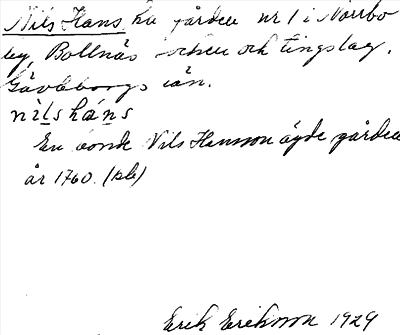 Nils Hans hu gården nr 1 i Norrbo
by, Bollnäs socken och tingslag,
Gävleborgs län.
nìlshá̀ns
En bonde Nils Hansson ägde gården
år 1760. (kb)
Erik Erikson 1929